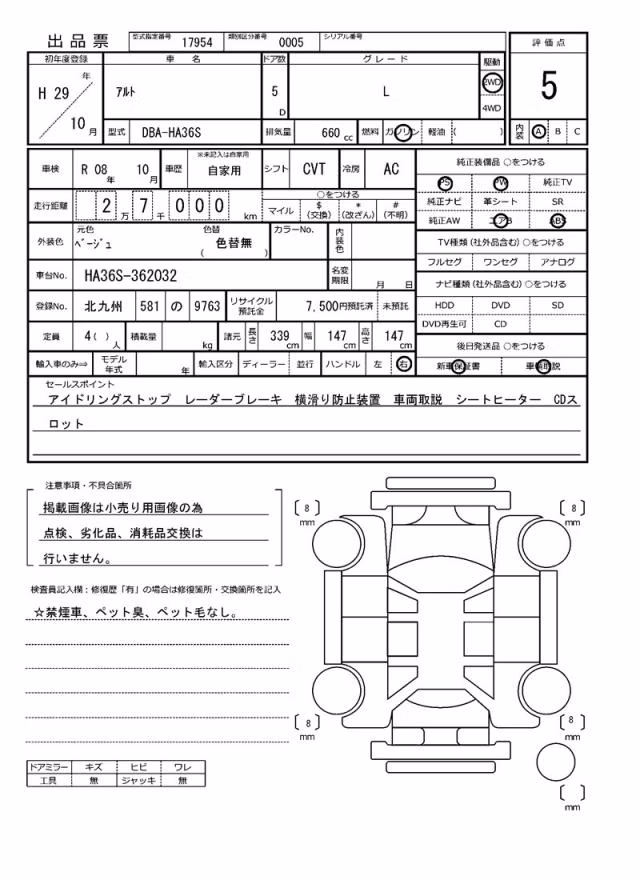 出品票 型式指定番号 17954 類別区分番号 0005 シリアル番号
初年度登録 車名 ドア数 グレード 駆動 評価点
H 29 年 10 月 ｱﾙﾄ 5 D L 2WD 4WD 5
型式 DBA-HA36S 排気量 660 cc 燃料 ガソリン 軽油 ( ) 内装 A B C
車検 R 08 年 10 月 車歴 ※未記入は自家用 自家用 シフト CVT 冷房 AC 純正装備品 ○をつける
PS PW 純正TV
走行距離 2 万 7 千 0 0 0 km ○をつける 純正ナビ 革シート SR
マイル $ (交換) * (改ざん) # (不明) 純正AW エアB ABS
外装色 元色 ﾍﾞｰｼﾞｭ 色替 ( 色替無 ) カラーNo. 内装色 TV種類 (社外品含む) ○をつける
フルセグ ワンセグ アナログ
車台No. HA36S-362032 名変期限 月 日 ナビ種類 (社外品含む) ○をつける
登録No. 北九州 581 の 9763 リサイクル預託金 7,500円預託済 未預託 HDD DVD SD
DVD再生可 CD
定員 4 ( ) 人 積載量 kg 諸元 長さ 339 cm 幅 147 cm 高さ 147 cm 後日発送品 ○をつける
輸入車のみ⇒ モデル年式 年 輸入区分 ディーラー 並行 ハンドル 左 右 新車保証書 車輌取説
セールスポイント
アイドリングストップ レーダーブレーキ 横滑り防止装置 車両取説 シートヒーター CDス
ロット
注意事項・不具合箇所
掲載画像は小売り用画像の為
点検、劣化品、消耗品交換は
行いません。
検査員記入欄：修復歴「有」の場合は修復箇所・交換箇所を記入
☆禁煙車、ペット臭、ペット毛なし。
[ 8 ] mm [ 8 ] mm
[ 8 ] mm [ 8 ] mm
[ ] mm
ドアミラー キズ ヒビ ワレ
工具 無 ジャッキ 無